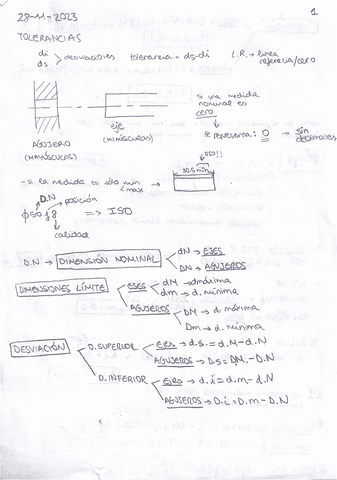 28-11-2023 1
TOLERANCIAS
di
ds > desviaciones tolerancia = ds-di L.R. → línea referencia/cero
si una medida nominal es cero
se representa: 0 → sin decimales
AGUJERO (MAYÚSCULAS)
eje (minúsculas)
ojo!!
- si la medida es sólo min max → 30.5 min
D.N posición
ϕ50 f8 => ISO
calidad
D.N → DIMENSIÓN NOMINAL dN → EJES
DN → AGUJEROS
DIMENSIONES LÍMITE ejes dM → d.máxima
dm → d. mínima
AGUJEROS DM → d. máxima
Dm → d. mínima
DESVIACIÓN D. SUPERIOR ejes → d.s. = d.M - d.N
AGUJEROS → D.s = D.M. - D.N
D. INFERIOR ejes → d.i = d.m - d.N
AGUJEROS → D.i = D.m - D.N